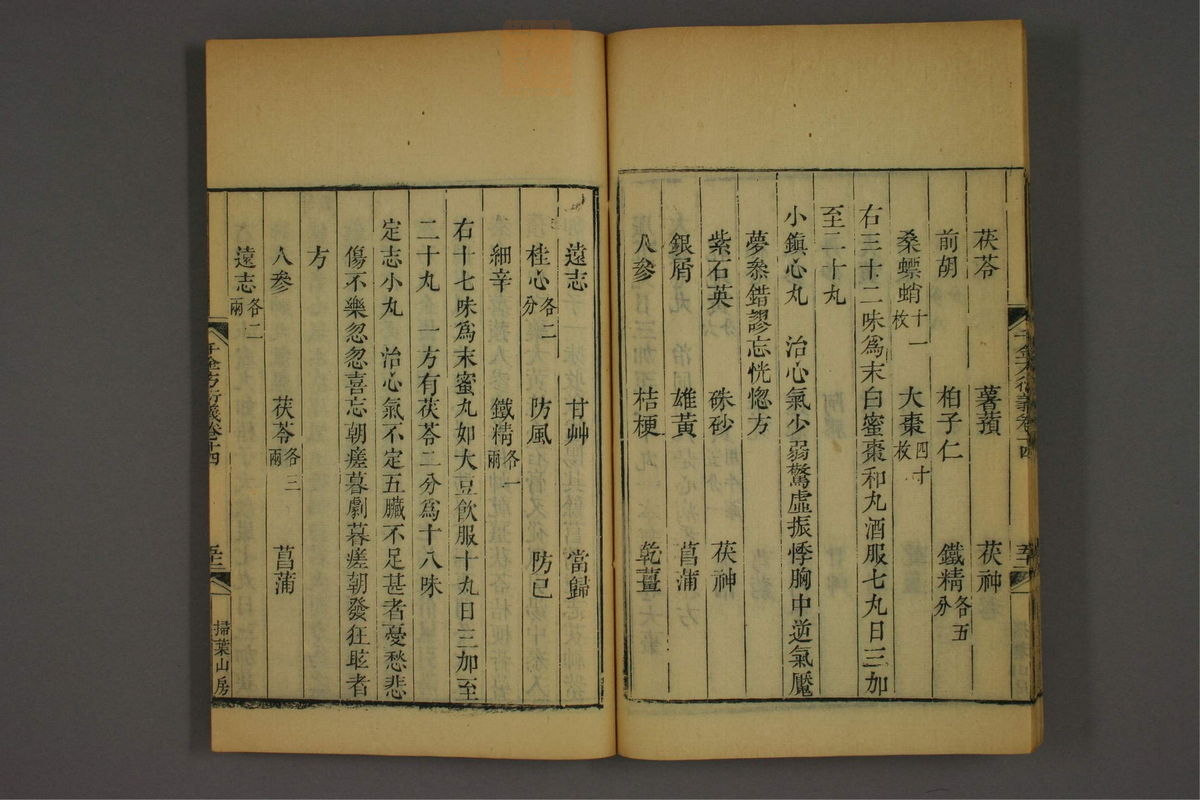 茯苓 薯蕷 茯神
前胡 柏子仁 鐵精各五分
桑螵蛸十一枚 大棗四十枚
右三十二味爲末白蜜棗和丸酒服七丸日三加
至二十丸
小鎭心丸 治心氣少弱驚虛振悸胸中逆氣魘
夢叅錯謬忘恍惚方
紫石英 硃砂 茯神
銀屑 雄黃 菖蒲
人參 桔梗 乾薑
遠志 甘艸 當歸
桂心各二分 防風 防己
細辛 鐵精各一兩
右十七味爲末蜜丸如大豆飮服十丸日三加至
二十丸 一方有茯苓二分爲十八味
定志小丸 治心氣不定五臟不足甚者憂愁悲
傷不樂忽忽喜忘朝瘥暮劇暮瘥朝發狂眩者
方
人參 茯苓各三兩 菖蒲
遠志各二兩
千金方衍義卷十四 掃葉山房